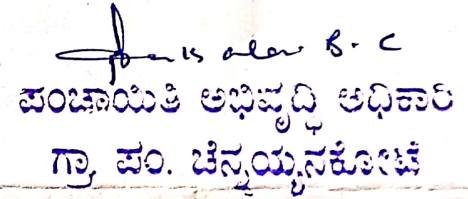 B. C
ಪಂಚಾಯಿತಿ ಅಭಿವೃದ್ಧಿ ಅಧಿಕಾರಿ
ಗ್ರಾ. ಪಂ. ಚೆನ್ನಯ್ಯನಕೋಟೆ